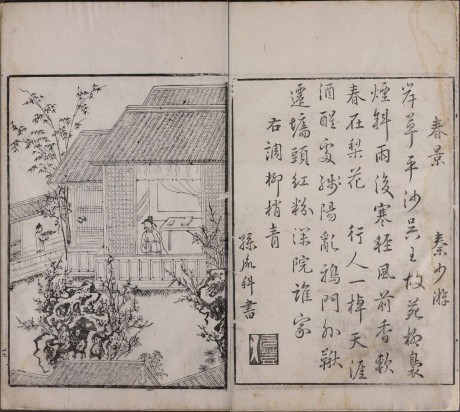 春景 秦少游
岸草平沙吳王故苑柳裊
煙斜雨後寒輕風前香軟
春在梨花 行人一棹天涯
酒醒處殘陽亂鴉門外鞦
遷墻頭紅粉深院誰家
右調柳梢青
孫 科書